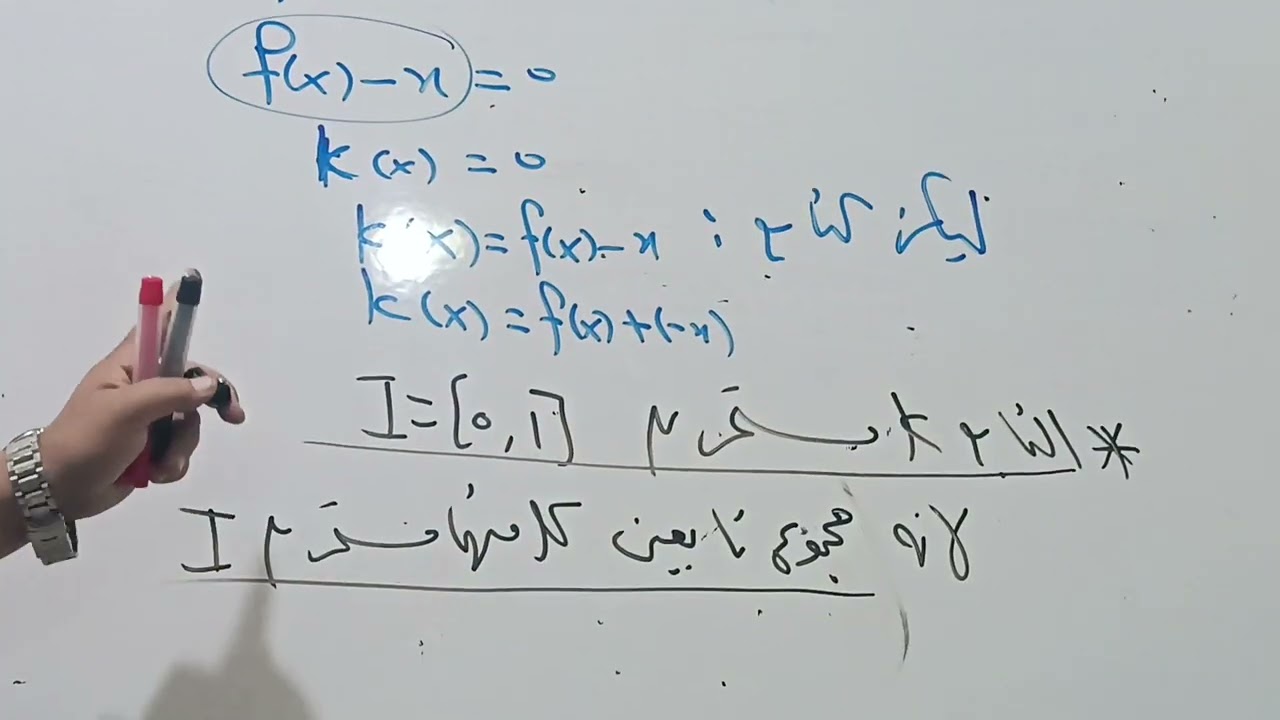 f(x)-x=0
k(x)=0
ليكن التابع : k(x)=f(x)-x
k(x)=f(x)+(-x)
* التابع k مستمر على I=[0,1]
لأنه مجموع تابعين كلا منهما مستمر على I